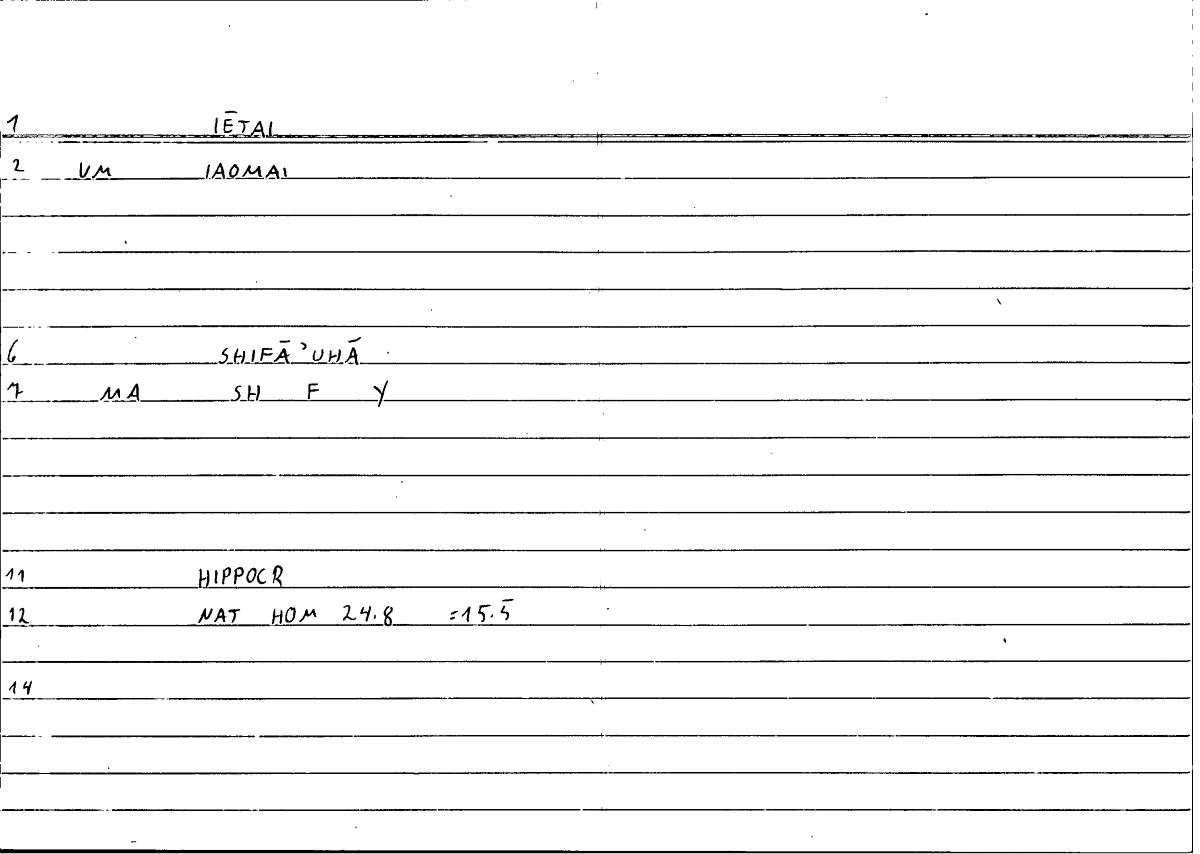 1 IĒTAI
2 VM IAOMAI
6 SHIFĀʾUHĀ
7 MA SH F Y
11 HIPPOCR
12 NAT HOM 24.8 =15.5
14